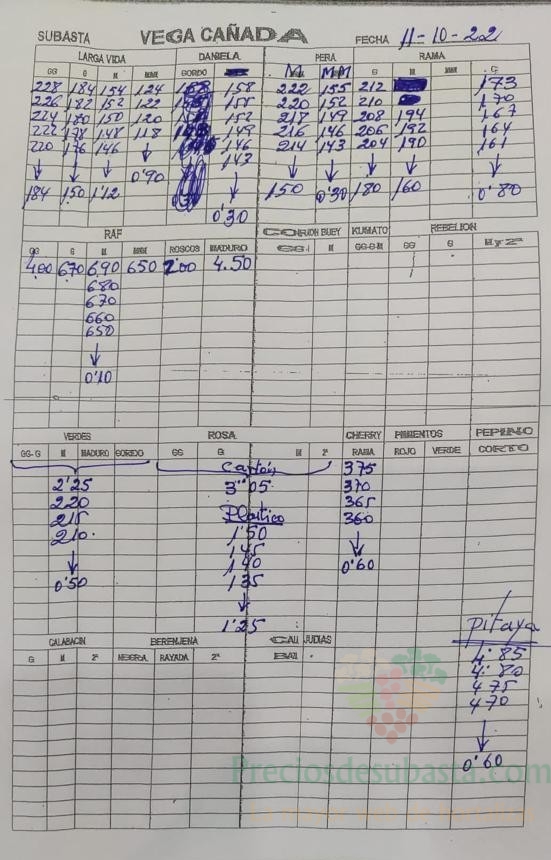 SUBASTA VEGA CAÑADA FECHA 11-10-22
LARGA VIDA DANIELA PERA RAMA
GG G M MMM GORDO M MM G M MMM C
228 184 154 124 158 222 155 212 173
226 182 152 122 155 220 152 210 170
224 180 150 120 152 218 149 208 194 167
222 178 148 118 149 216 146 206 192 164
220 176 146 146 214 143 204 190 161
↓ ↓ ↓ ↓ 143 ↓ ↓ ↓ ↓ ↓
0'90 ↓
184 150 1'12 150 0'30 180 160 0'80
0'30
RAF CORAZON BUEY KUMATO REBELION
GG G M MMM ROSCOS MADURO GG M GG-G-M GG G M y 2ª
400 670 6,90 650 200 4.50
680
670
660
650
↓
0'10
VERDES ROSA CHERRY PIMIENTOS PEPINO
GG-G M MADURO GORDO GG G M 2ª RAMA ROJO VERDE CORTO
Cartón 375
2'25 3"05 370
220 Plastico 365
215 1'50 360
210 1'45 ↓
↓ 140 0'60
0'50 1'35
↓
1'25
Pitaya
CALABACIN BERENJENA CALI JUDIAS
G M 2ª NEGRA RAYADA 2ª
4'85
4'80
475
470
↓
0'60
Preciosdesubasta.com